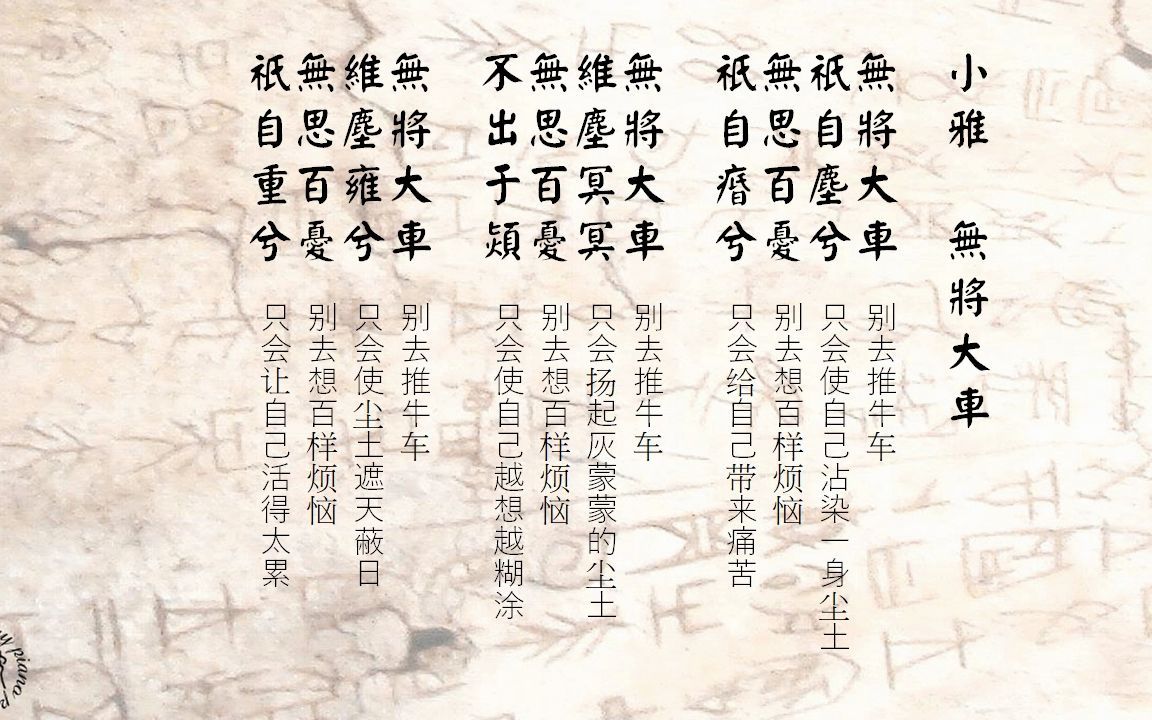 小雅 無將大車
無將大車 别去推牛车
祇自塵兮 只会使自己沾染一身尘土
無思百憂 别去想百样烦恼
祇自瘏兮 只会给自己带来痛苦
無將大車 别去推牛车
維塵冥冥 只会扬起灰蒙蒙的尘土
無思百憂 别去想百样烦恼
不出于熲 只会使自己越想越糊涂
無將大車 别去推牛车
維塵雍兮 只会使尘土遮天蔽日
無思百憂 别去想百样烦恼
祇自重兮 只会让自己活得太累
piano